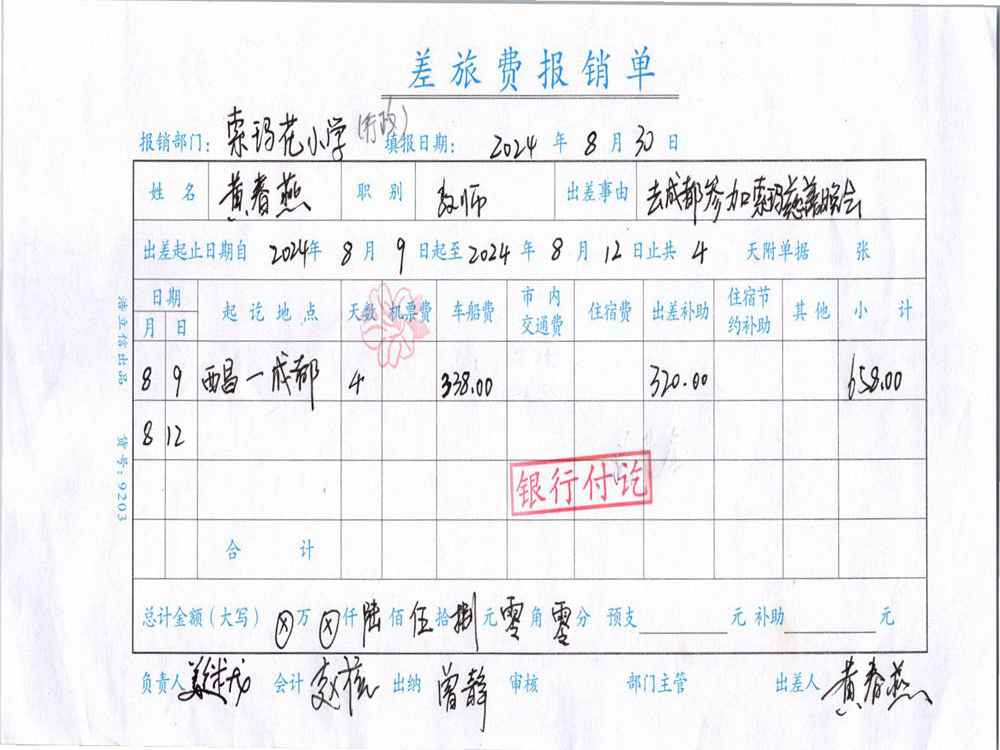 差旅费报销单
报销部门: 索玛花小学 (行政) 填报日期: 2024 年 8 月 30 日
姓名 黄春燕 职别 教师 出差事由 去成都参加索玛慈善晚会
出差起止日期自 2024年 8 月 9 日起至 2024 年 8 月 12 日止共 4 天附单据 张
日期 起讫地点 天数 机票费 车船费 市内交通费 住宿费 出差补助 住宿节约补助 其他 小计
月 日
8 9 西昌—成都 4 338.00 320.00 658.00
8 12
银行付讫
合计
总计金额(大写) ⊗万 ⊗仟 陆佰 伍拾 捌元 零角 零分 预支 元 补助 元
负责人 会计 出纳 曾静 审核 部门主管 出差人 黄春燕
货号: 9203